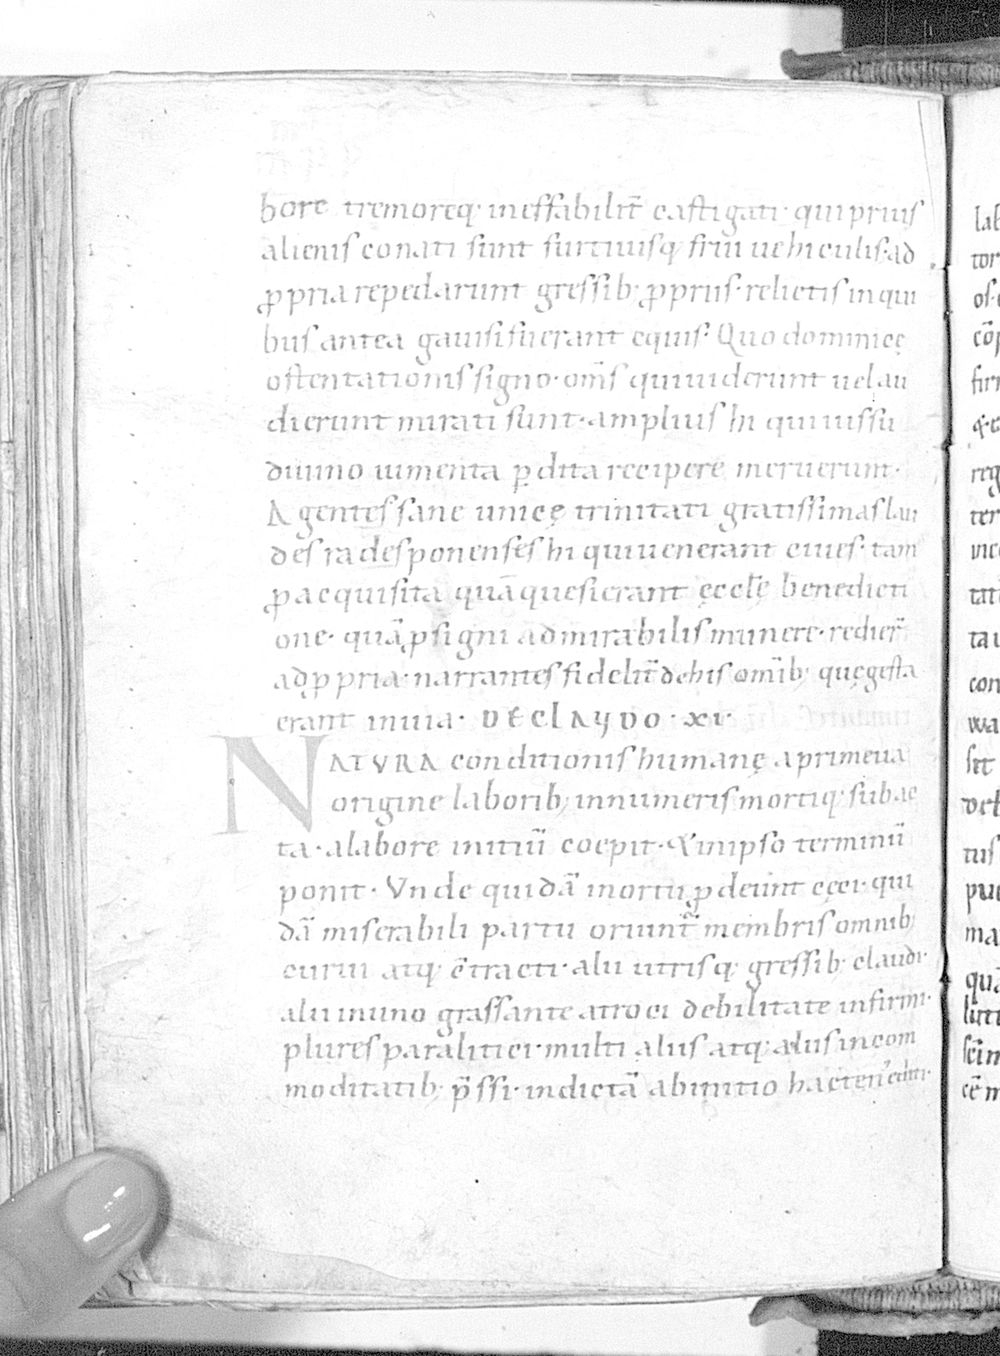 bore tremoreq; ineffabilit̄ castigati· qui prius
alienis conati sunt furtiuisq; frui uehiculis· ad
ꝓpria repedarunt gressib; ꝓpriis· relictis in qui
bus antea gauisi fuerant equis· Quo dominicę
ostentationis signo· om̄s qui uiderunt uel au
dierunt mirati sunt· amplius hi qui iussu
diuino iumenta ꝑdita recipere meruerunt·
Agentes sane unicę trinitati gratissimas lau
des ra desponenses hi qui uenerant ciues· tam
ꝓ acquisita quā quesierant ęcclę̄ benedicti
one· quā ꝓ signi admirabilis munere· redier̄
ad ꝓpria· narrantes fidelit̄ de his om̄ib; quę gesta
erant in uia· DE CLAUDO· XV·
NATURA conditionis humanę a primeua
origine laborib; innumeris mortiq; subac
ta· a labore initiū coepit· & in ipso terminū
ponit· Vnde quidā mortui ꝓdeunt cęci· qui
dā miserabili partu oriunt̄ membris omnib;
curui atq; c̄tracti· alii utrisq; gressib; claudi·
alii in uno grassante atroci debilitate infirmi·
plures paralitici· multi aliis atq; aliis incom
moditatib; p̄ssi· in dictā ab initio hacten; editi·
lab
tor
firm
reg
ter
tati
con
sit
tus